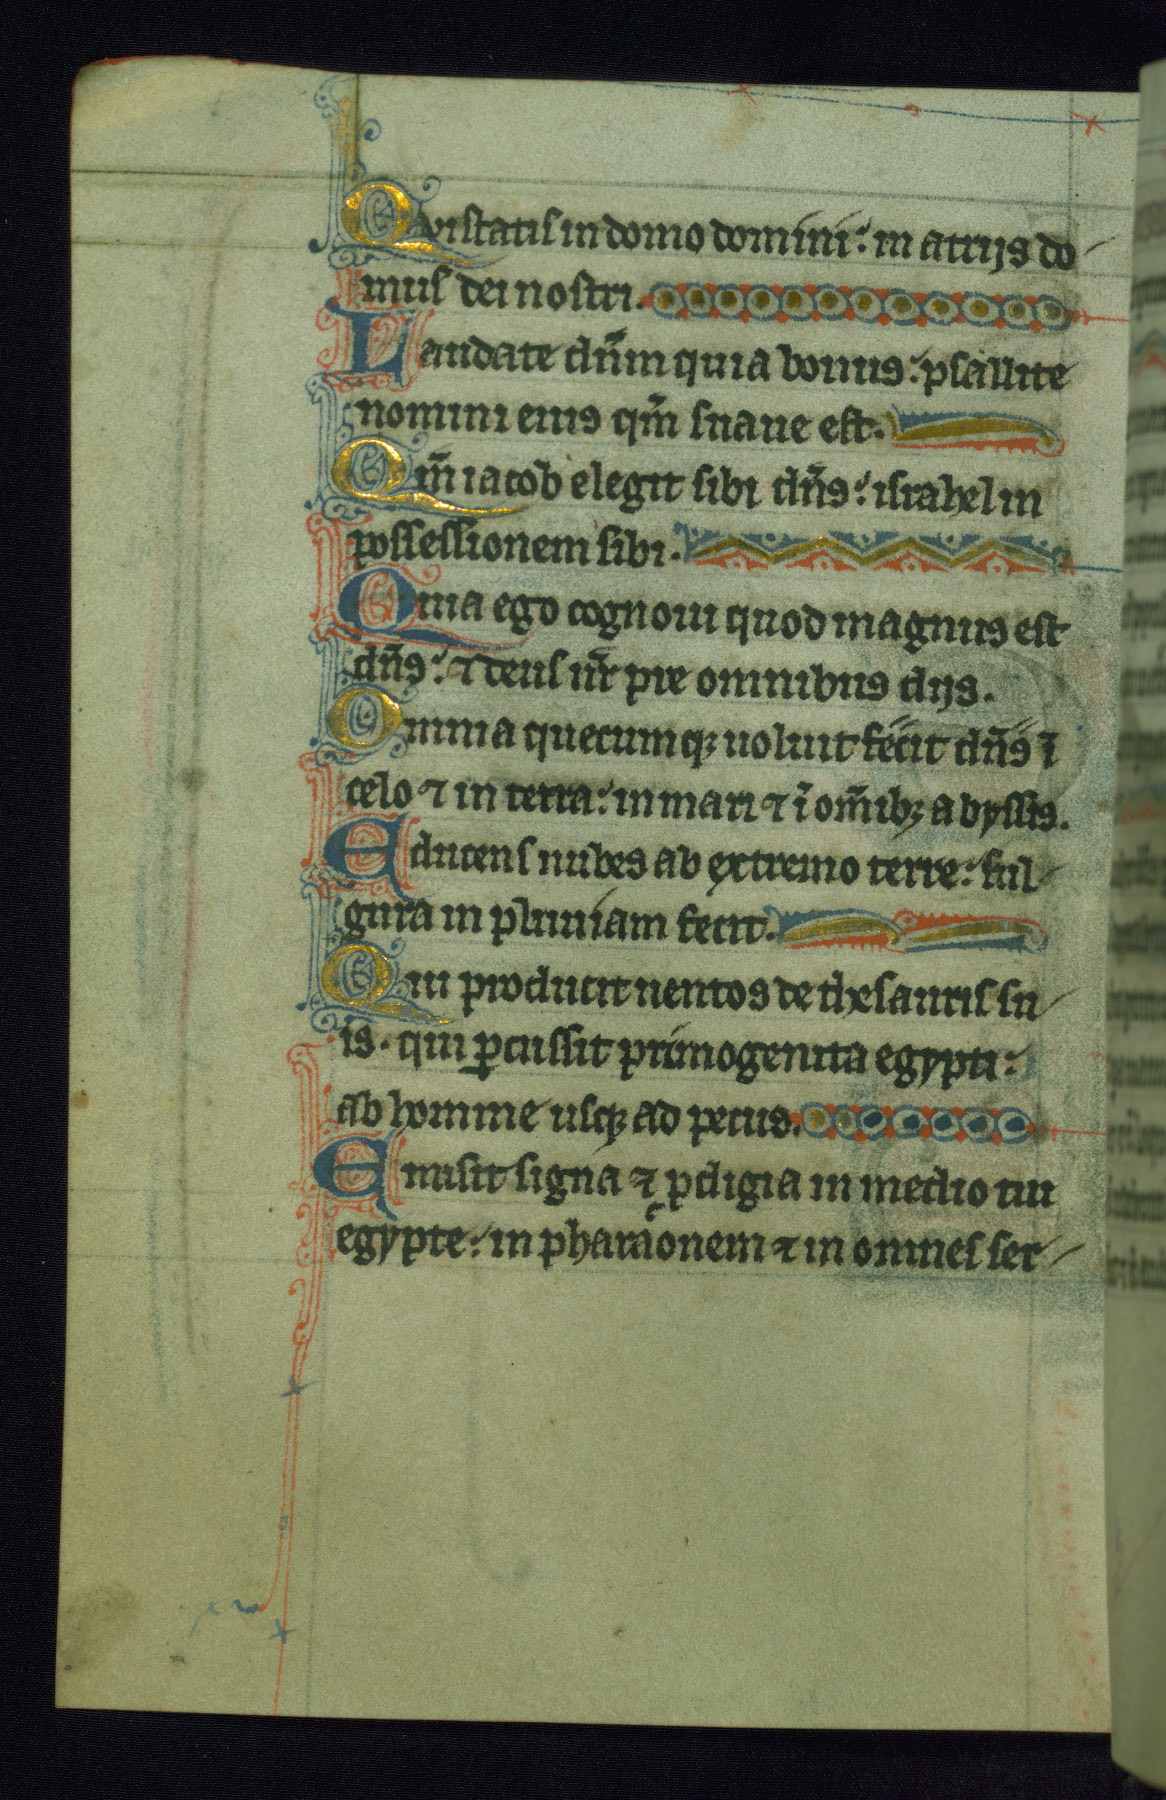 Qui statis in domo domini: in atrijs do-
mus dei nostri.
Laudate dn̄m quia bonus: psallite
nomini eius qm̄ suaue est.
Qm̄ iacob elegit sibi dn̄s: israhel in
possessionem sibi.
Quia ego cognoui quod magnus est
dn̄s: ⁊ deus nr̄ pre omnibus dijs.
Omnia quecumqꝫ uoluit fecit dn̄s ī
celo ⁊ in terra: in mari ⁊ ī om̄ibꝫ abyssis.
Educens nubes ab extremo terre: ful-
gura in pluuiam fecit.
Qui producit uentos de thesauris su-
is. qui ꝑcussit primogenita egypti:
ab homine usqꝫ ad pecus.
Emisit signa ⁊ ꝓdigia in medio tui
egypte: in pharaonem ⁊ in omnes ser-